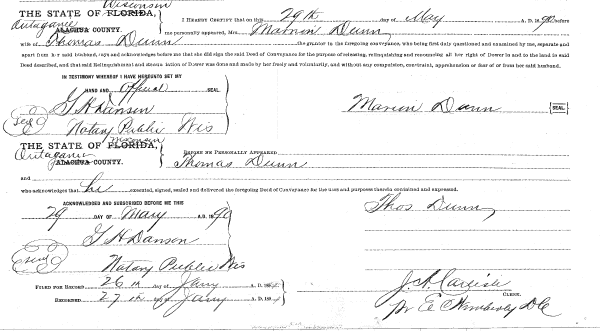 Wisconsin
THE STATE OF FLORIDA,
Outagamie
ALACHUA COUNTY.
I HEREBY CERTIFY that on this 29th day of May A. D. 1890 before
me personally appeared, Mrs. Marion Dunn
wife of Thomas Dunn the grantor to the foregoing conveyance, who being first duly questioned and examined by me, separate and
apart from her said husband, says and acknowledges before me that she did sign the said Deed of Conveyance for the purpose of releasing, relinquishing and renouncing all her right of Dower in and to the land in said
Deed described, and that said Relinquishment and renunciation of Dower was done and made by her freely and voluntarily, and without any compulsion, constraint, apprehension or fear of or from her said husband.
IN TESTIMONY WHEREOF I HAVE HEREUNTO SET MY
HAND AND Official SEAL
G H Danson
Marion Dunn SEAL
Seal
Notary Public Wis
Wisconsin
THE STATE OF FLORIDA,
Outagamie
ALACHUA COUNTY.
BEFORE ME PERSONALLY APPEARED
Thomas Dunn
and
who acknowledges that he executed, signed, sealed and delivered the foregoing Deed of Conveyance for the uses and purposes therein contained and expressed.
ACKNOWLEDGED AND SUBSCRIBED BEFORE ME THIS
29 DAY OF May A. D. 1890
Thos Dunn
G H Danson
Seal
Notary Public Wis
FILED FOR RECORD 26 th day Jany A. D. 189
RECORDED 27 th day Jany A. D. 189
CLERK.
Pr E. Wimberly D C